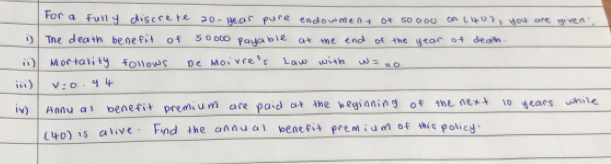 For a fully discrete 20-year pure endowment of 50 000 on (40), you are given:
i) The death benefit of 50000 payable at the end of the year of death.
ii) Mortality follows De Moivre's Law with w=110
iii) V=0.94
iv) Annual benefit premium are paid at the beginning of the next 10 years while
(40) is alive. Find the annual benefit premium of this policy.